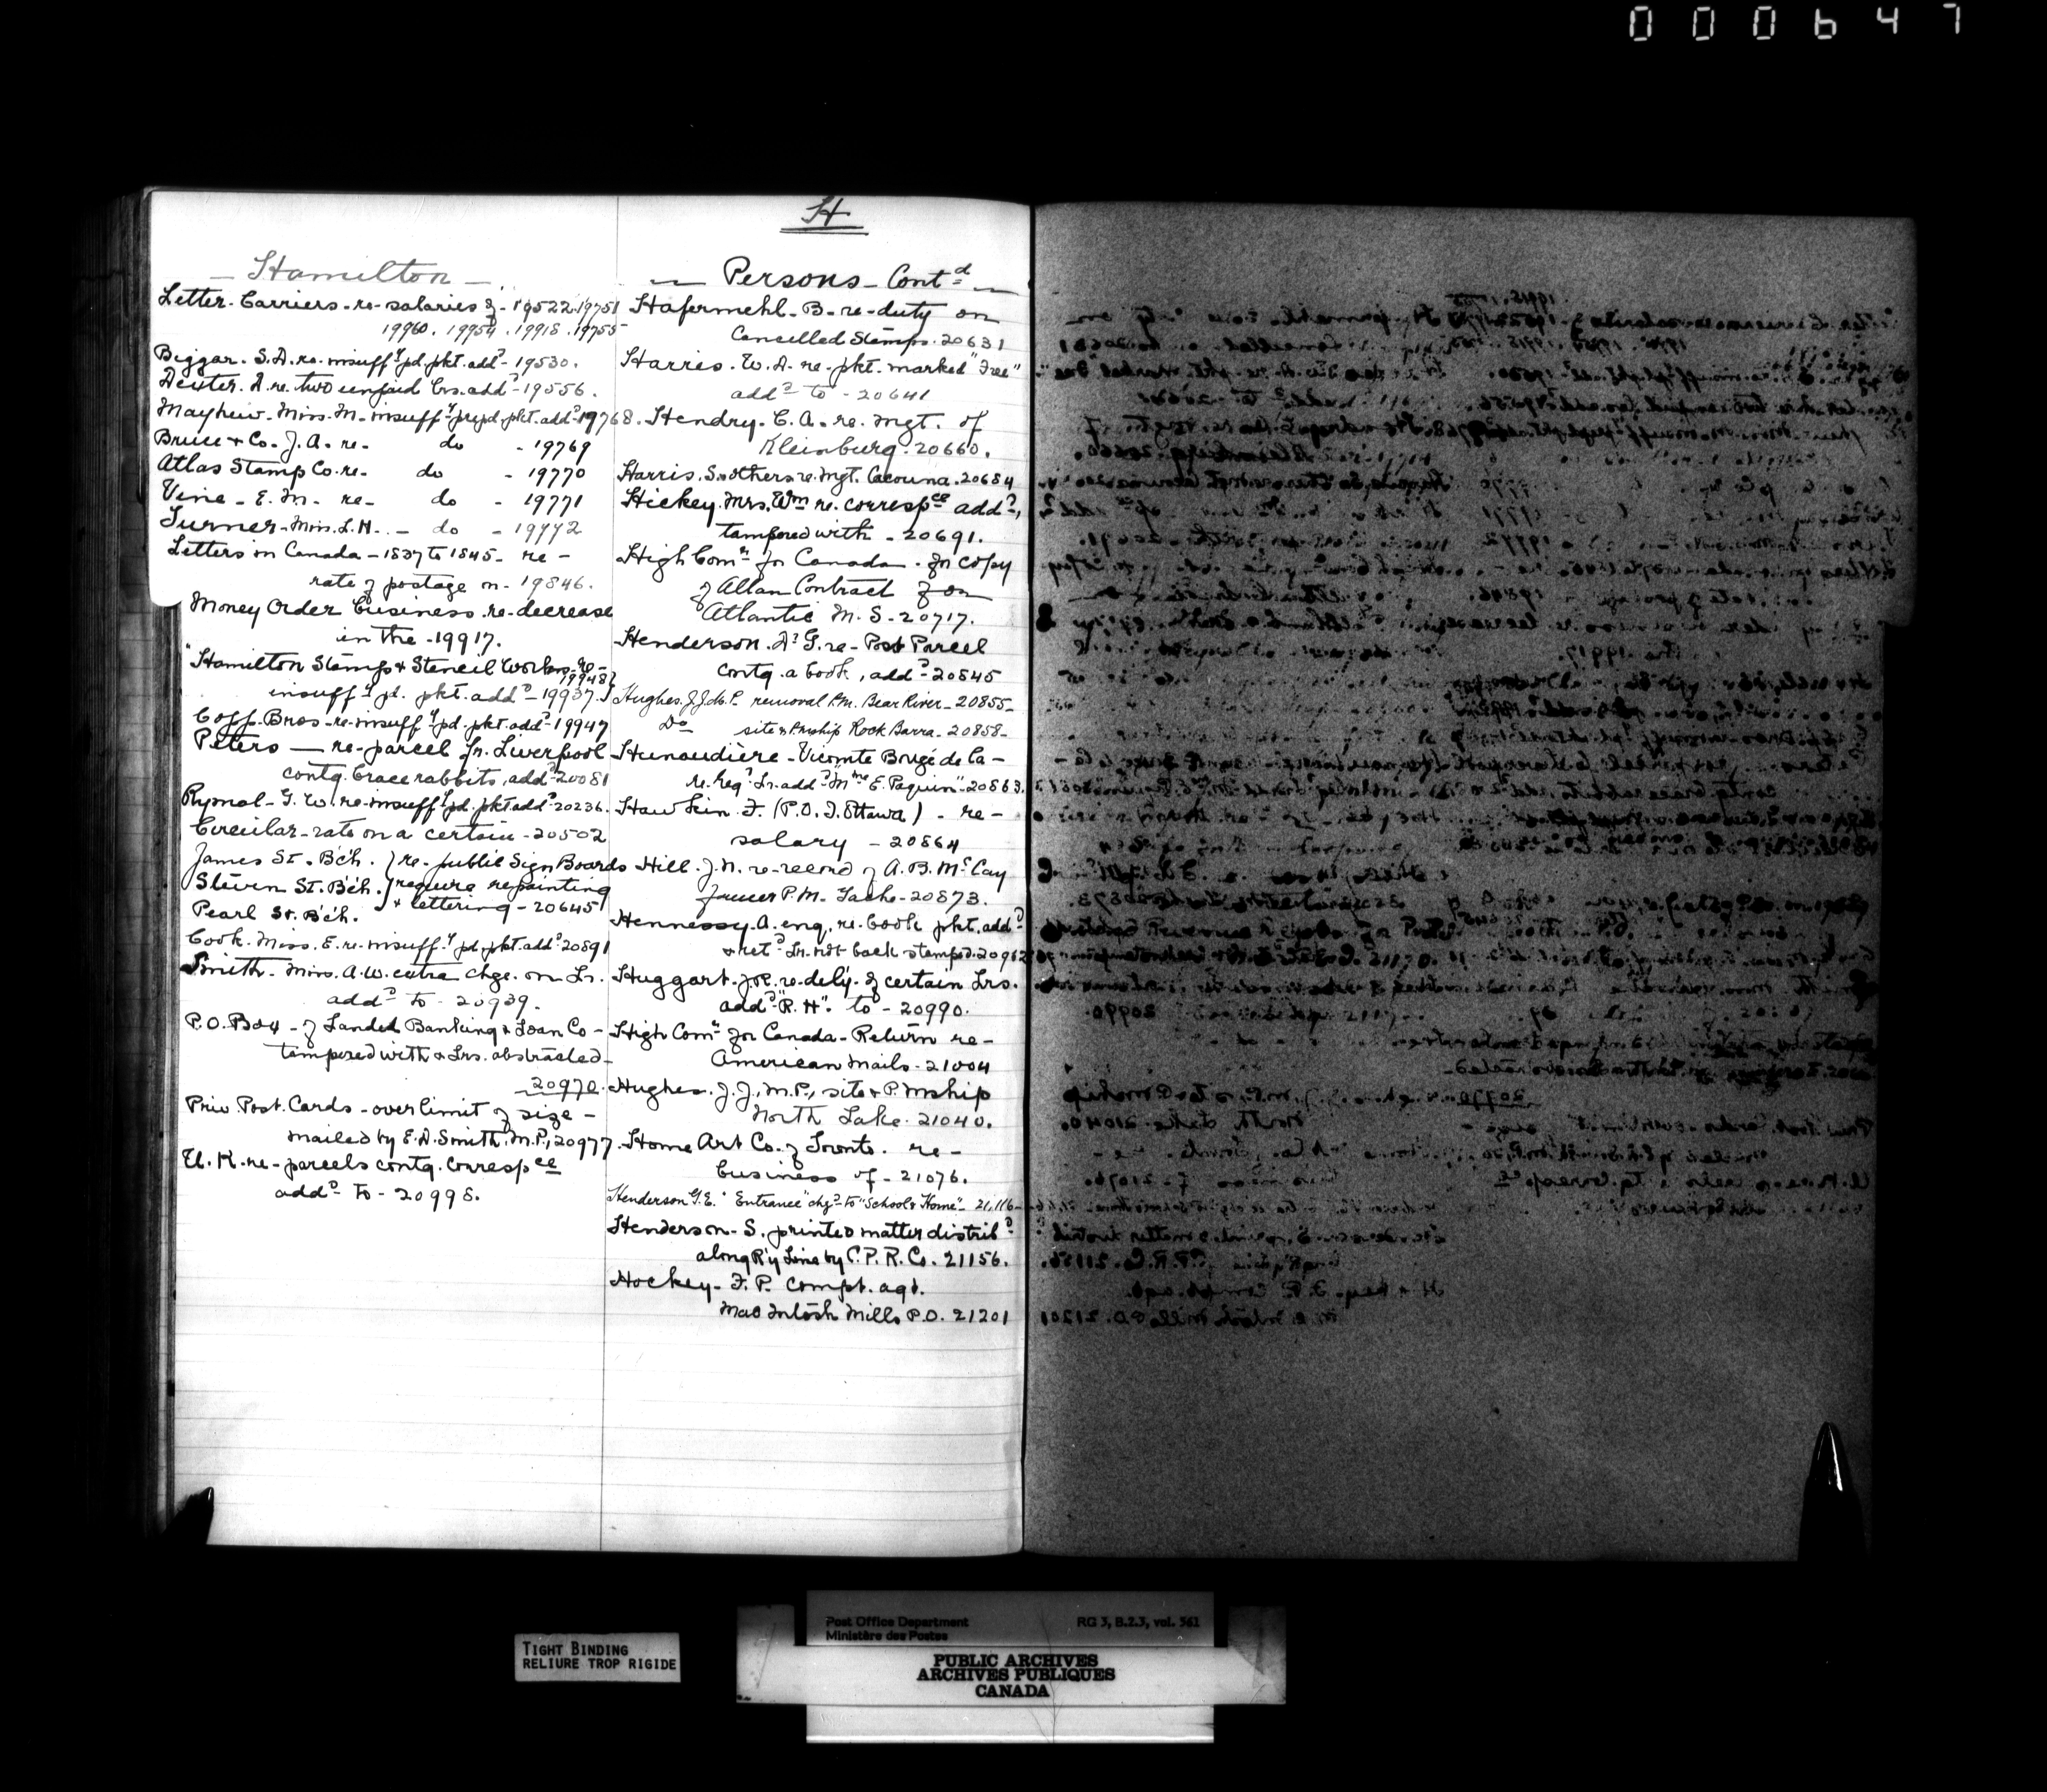 000647
H
— Hamilton —
Letter-Carriers-re-salaries of - 19522.19751
19960. 19954. 19918. 19755
Biggar. S.D. re. insuffy pd. pkt. addd - 19530.
Dexter. A. re. two unpaid lrs. addd - 19556.
Mayhew. Miss. M. insuffy prepd. pkt. addd 19768.
Bruce & Co. J. A. re- do - 19769
Atlas Stamp Co. re- do - 19770
Vine - E. M. - re- do - 19771
Turner - Miss. L. H. - do - 19772
Letters in Canada - 1837 to 1845 - re -
rate of postage on - 19846.
Money Order business. re-decrease
in the - 19917.
"Hamilton Stamp & Stencil Works. re-
19948
insuffy pd. pkt. addd - 19937.
Copp. Bros - re-insuffy pd. pkt. addd - 19947
Peters — re-parcel fr. Liverpool
contg. brace rabbits, addd 20081
Rymal - G. W. re-insuffy pd. pkt addd 20236.
Circular - rate on a certain - 20502
James St. B'ch. } re- public Sign Boards
Steven St. B'ch. } require repainting
& lettering - 20645
Pearl St. B'ch.
Cook. Miss. E. re-insuffy pd. pkt. addd 20891
Smith - Miss. A. W. extra chge. on Lr.
addd to - 20939.
P.O. Box - of Landed Banking & Loan Co -
tampered with & Lrs. abstracted -
20970.
Priv Post. Cards - over limit of size -
mailed by E. D. Smith. M.P., 20977.
U. K. re- parcels contg. correspce
addd to - 20998.
— Persons - Contd —
Hafermehl - B. - re-duty on
Cancelled Stamps. 20631
Harris. W. A. re- pkt. marked "Free"
addd to - 20641
Hendry. C. A. re. mgt. of
Kleinburg. 20660.
Harris. S. & others re. Mgt. Cacouna. 20684
Hickey. Mrs. Wm re. correspce addd,
tampered with - 20691.
High Comr for Canada - for copy
of Allan Contract for
Atlantic M. S. - 20717.
Henderson. Dr G. re - Post Parcel
contg. a book, addd - 20845
Hughes. J. J. M.P. removal P.M. Bear River - 20855 -
Do site & P.mship Rock Barra - 20858 -
Hunaudière - Vicomte Brugé de la -
re. Regd Lr. addd "Mme E. Paquin" - 20863.
Hawkin. F. (P.O. I. Ottawa) - re -
salary - 20864
Hill. J. N. re-record of A. B. McCay
former P.M. Lache - 20873.
Hennessy. A. enq. re. book pkt. addd
& retd Lr. not back stamped. 20962
Huggart. J. R. re-dely. of certain Lrs.
addd "R. H". to - 20990.
High Comr for Canada - Return re -
American Mails - 21004
Hughes. J. J., M.P., site & P.Mship
North Lake. 21040.
Home Art Co. of Toronto. re -
business of - 21076.
Henderson G. E. "Entrance" chgd to "School & Home" - 21,116 -
Henderson - S. printed matter distribd
along R'y Line by C. P. R. Co. 21156.
Hockey - F. P. Compt. agt.
MacIntosh Mills P.O. 21201
TIGHT BINDING
RELIURE TROP RIGIDE
Post Office Department RG 3, B.2.3, vol. 561
Ministère des Postes
PUBLIC ARCHIVES
ARCHIVES PUBLIQUES
CANADA